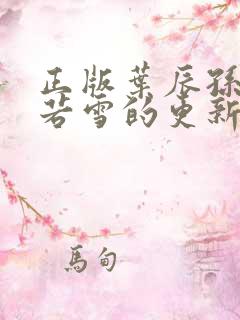 正版葉辰孫
若雪的更新
馬甸